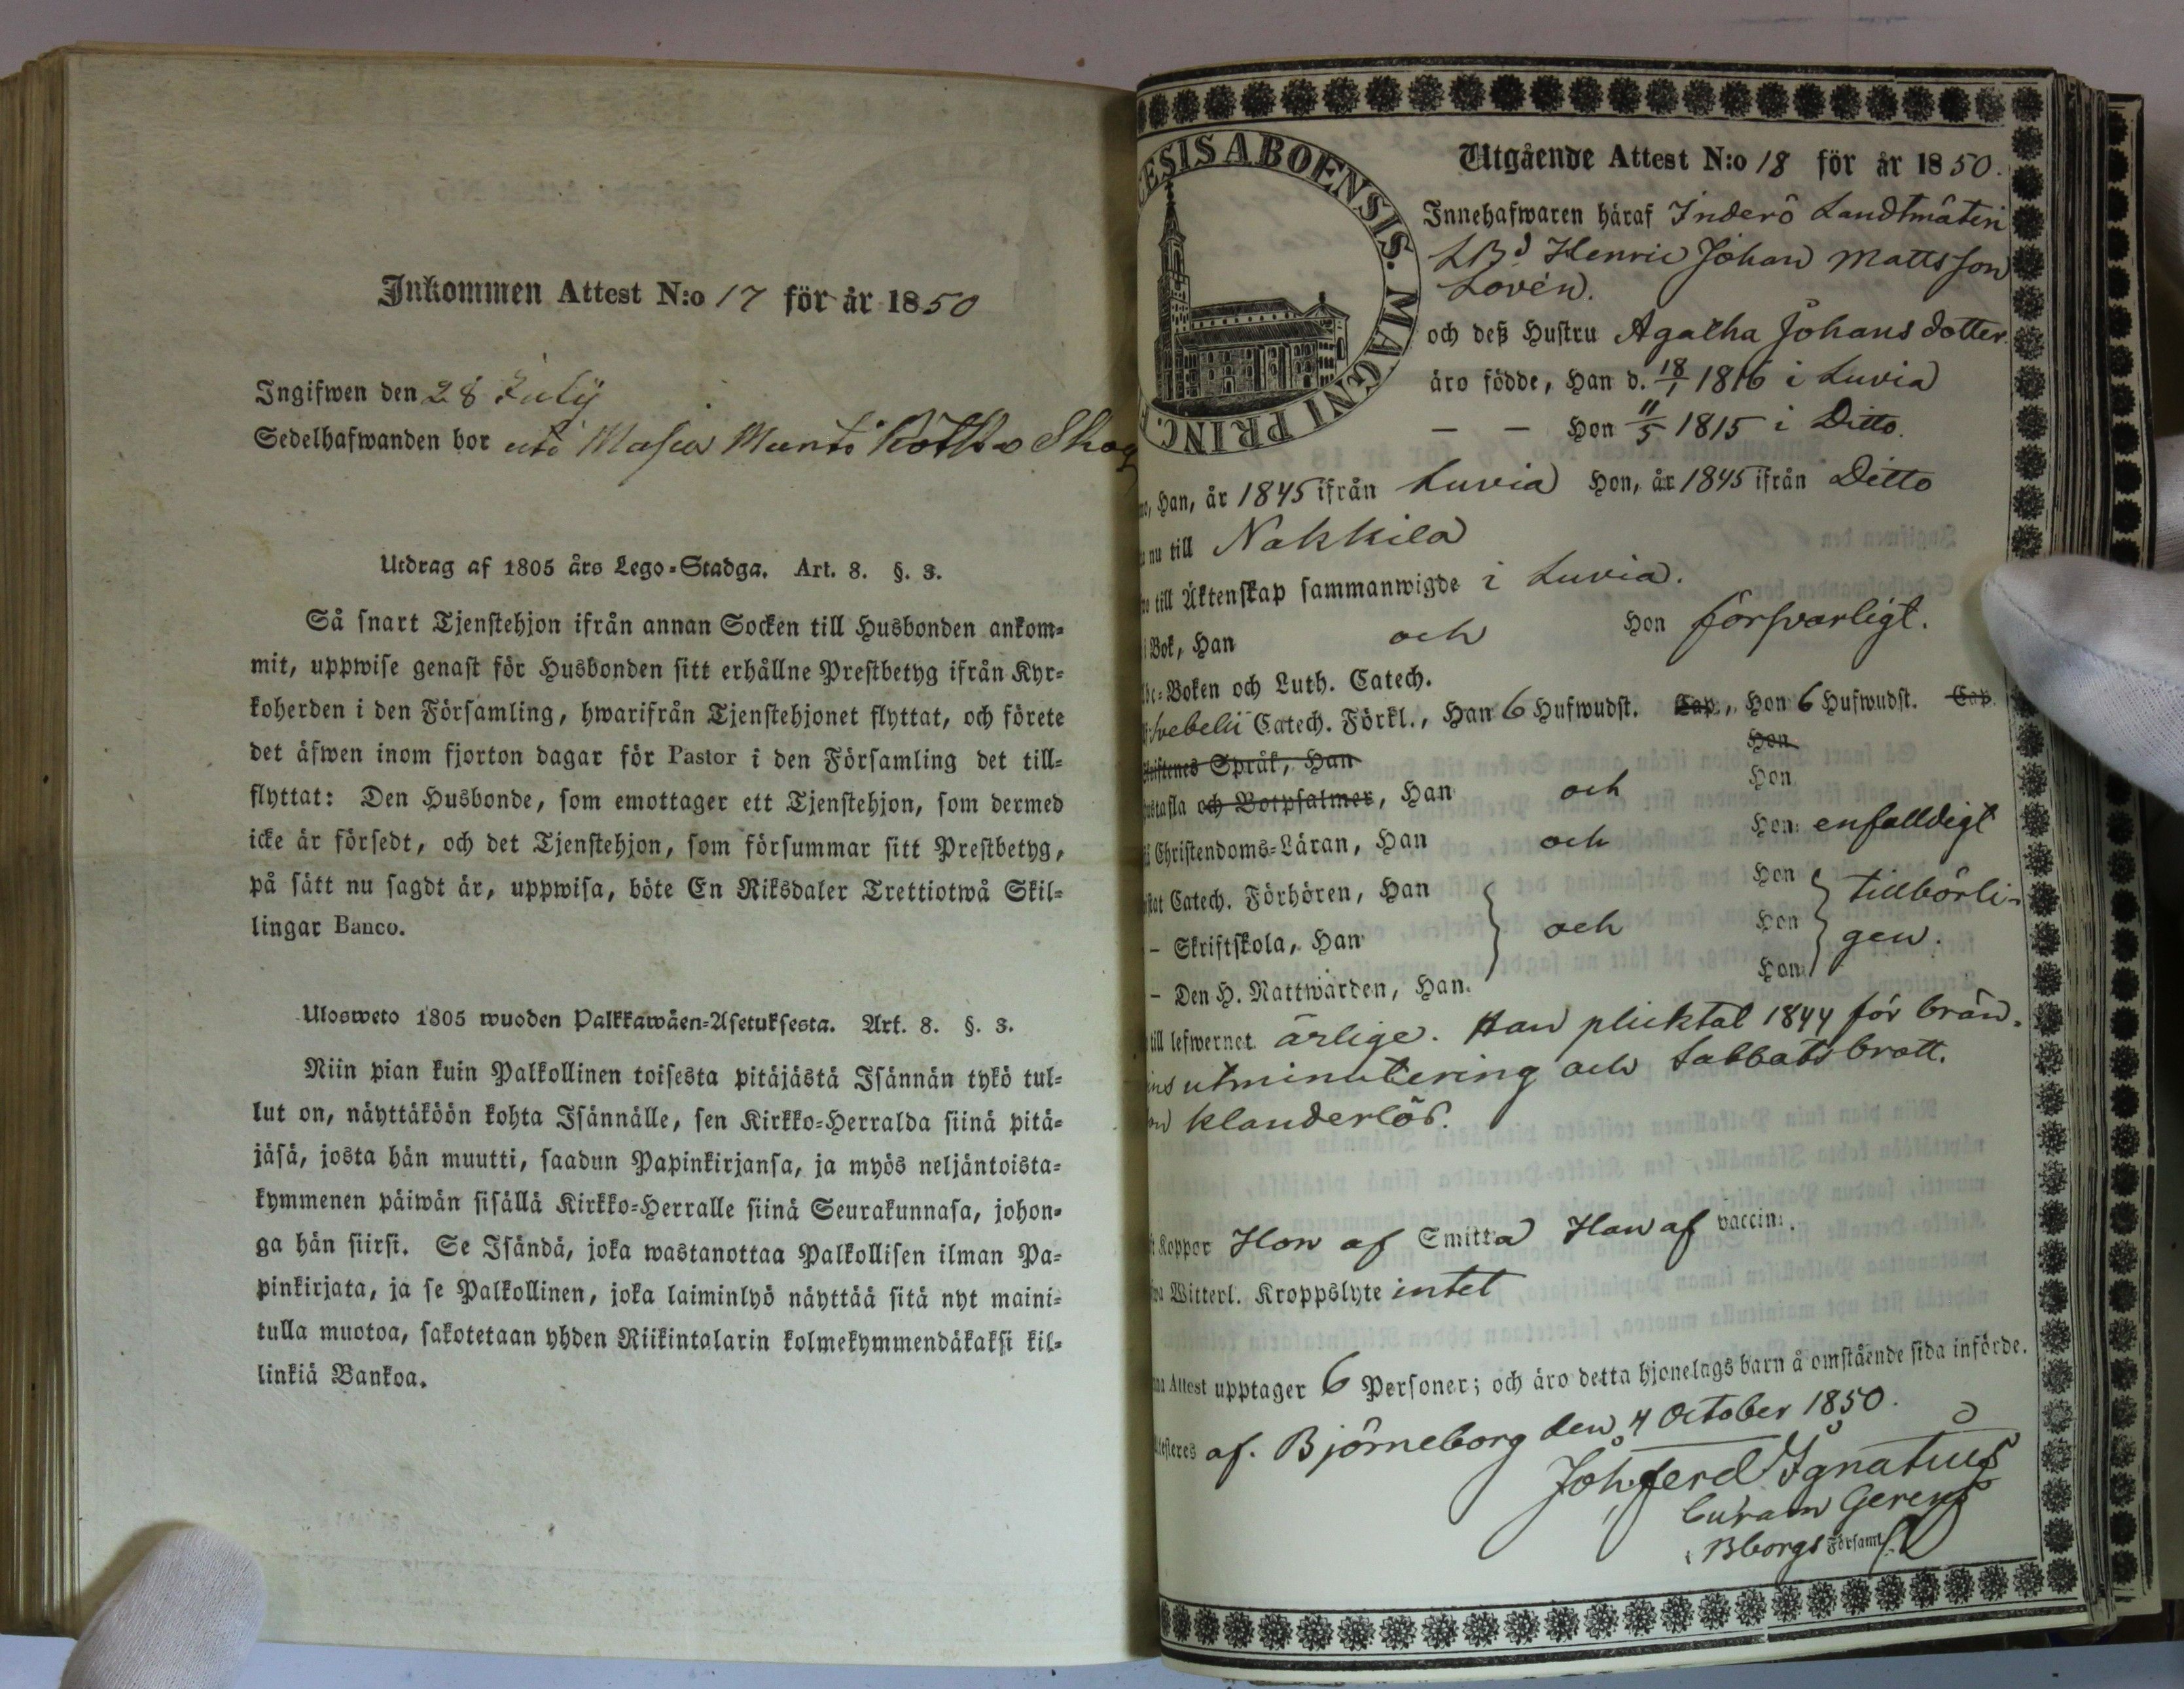 Inkommen Attest N:o 17 för år 1850
Ingifwen den 28 July
Sedelhafwanden bor uti Masia Munti
Utdrag af 1805 års Lego-Stadga. Art. 8. §. 3.
Så snart Tjenstehjon ifrån annan Socken till Husbonden ankom-
mit, uppwise genast för Husbonden sitt erhållne Prestbetyg ifrån Kyr-
koherden i den Församling, hwarifrån Tjenstehjonet flyttat, och förete
det äfwen inom fjorton dagar för Pastor i den Församling det till-
flyttat: Den Husbonde, som emottager ett Tjenstehjon, som dermed
icke är försedt, och det Tjenstehjon, som försummar sitt Prestbetyg,
på sätt nu sagdt är, uppwisa, böte En Riksdaler Trettiotwå Skil-
lingar Banco.
Ulosweto 1805 wuoden Palkkawäen-Asetuksesta. Art. 8. §. 3.
Niin pian kuin Palkollinen toisesta pitäjästä Isännän tykö tul-
lut on, näyttäköön kohta Isännälle, sen Kirkko-Herralda siinä pitä-
jäsä, josta hän muutti, saadun Papinkirjansa, ja myös neljäntoista-
kymmenen päiwän sisällä Kirkko-Herralle siinä Seurakunnasa, johon-
ga hän siirsi. Se Isändä, joka wastanottaa Palkollisen ilman Pa-
pinkirjata, ja se Palkollinen, joka laiminlyö näyttää sitä nyt maini-
tulla muotoa, sakotetaan yhden Riikintalarin kolmekymmendäkaksi kil-
linkiä Bankoa.
ESIS ABOENSIS. MAGNI PRINC.
Utgående Attest N:o 18 för år 1850.
Innehafwaren häraf Inderö Landtmäteri
Henric Johan Mattsson
Lovén.
och deß Hustru Agatha Johansdotter.
äro födde, Han d. 18/1 1816 i Luvia
— — Hon 11/5 1815 i Ditto.
Han, år 1845 ifrån Luvia Hon, år 1845 ifrån Ditto
nu till Nakkila
till Äktenskap sammanwigde i Luvia.
i Bok, Han och Hon försvarligt.
Abc-Boken och Luth. Catech.
Svebelii Catech. Förkl., Han 6 Hufwudst. Cap., Hon 6 Hufwudst. Cap.
Skriftenes Språk, Han Hon
Hustafla och Botpsalmer, Han och Hon
Christendoms-Läran, Han och Hon enfalldigt
Catech. Förhören, Han Hon tillbörli-
– Skriftskola, Han och Hon gen.
– Den H. Nattwarden, Han. Hon
till lefwernet ärlige. Han pliktat 1844 för brän-
vins utminutering och Sabbatsbrott.
Hon klanderlös.
Koppor Hon af Smitta Han af vaccin.
Witterl. Kroppslyte intet
Attest upptager 6 Personer; och äro detta hjonelags barn å omstående sida införde.
Attesteres af. Björneborg den 4 October 1850.
Joh. Ferd Ignatius
Curam Gerens
i Bborgs Församl.